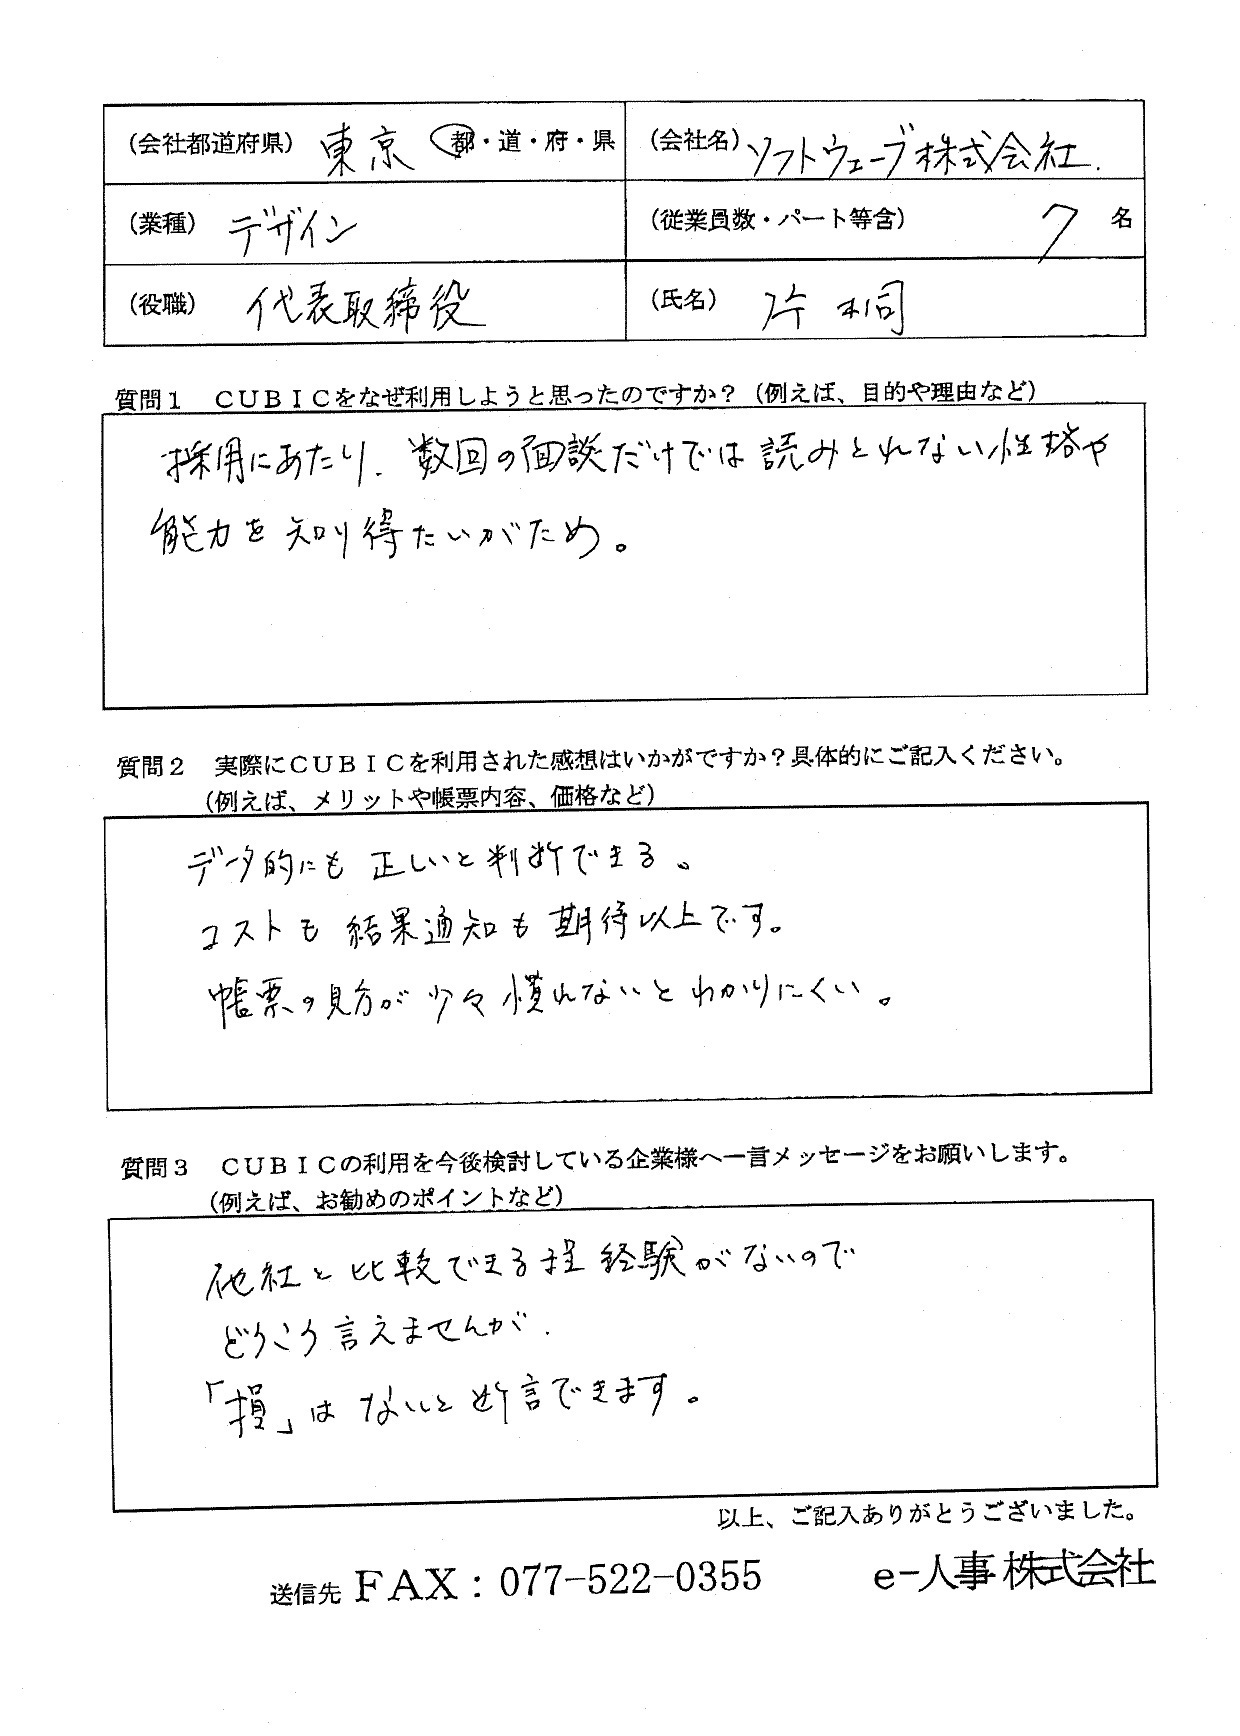 (会社都道府県) 東京 都・道・府・県 (会社名) ソフトウェーブ株式会社.
(業種) デザイン (従業員数・パート等含) 7 名
(役職) 代表取締役 (氏名) 片桐
質問1 CUBICをなぜ利用しようと思ったのですか?(例えば、目的や理由など)
採用にあたり、数回の面談だけでは読みとれない性格や
能力を知り得たいがため。
質問2 実際にCUBICを利用された感想はいかがですか?具体的にご記入ください。
(例えば、メリットや帳票内容、価格など)
データ的にも正しいと判断できる。
コストも結果通知も期待以上です。
帳票の見方が少々慣れないとわかりにくい。
質問3 CUBICの利用を今後検討している企業様へ一言メッセージをお願いします。
(例えば、お勧めのポイントなど)
他社と比較できる程経験がないので
どうこう言えませんが、
「損」はないと断言できます。
以上、ご記入ありがとうございました。
送信先 FAX:077-522-0355 e-人事株式会社